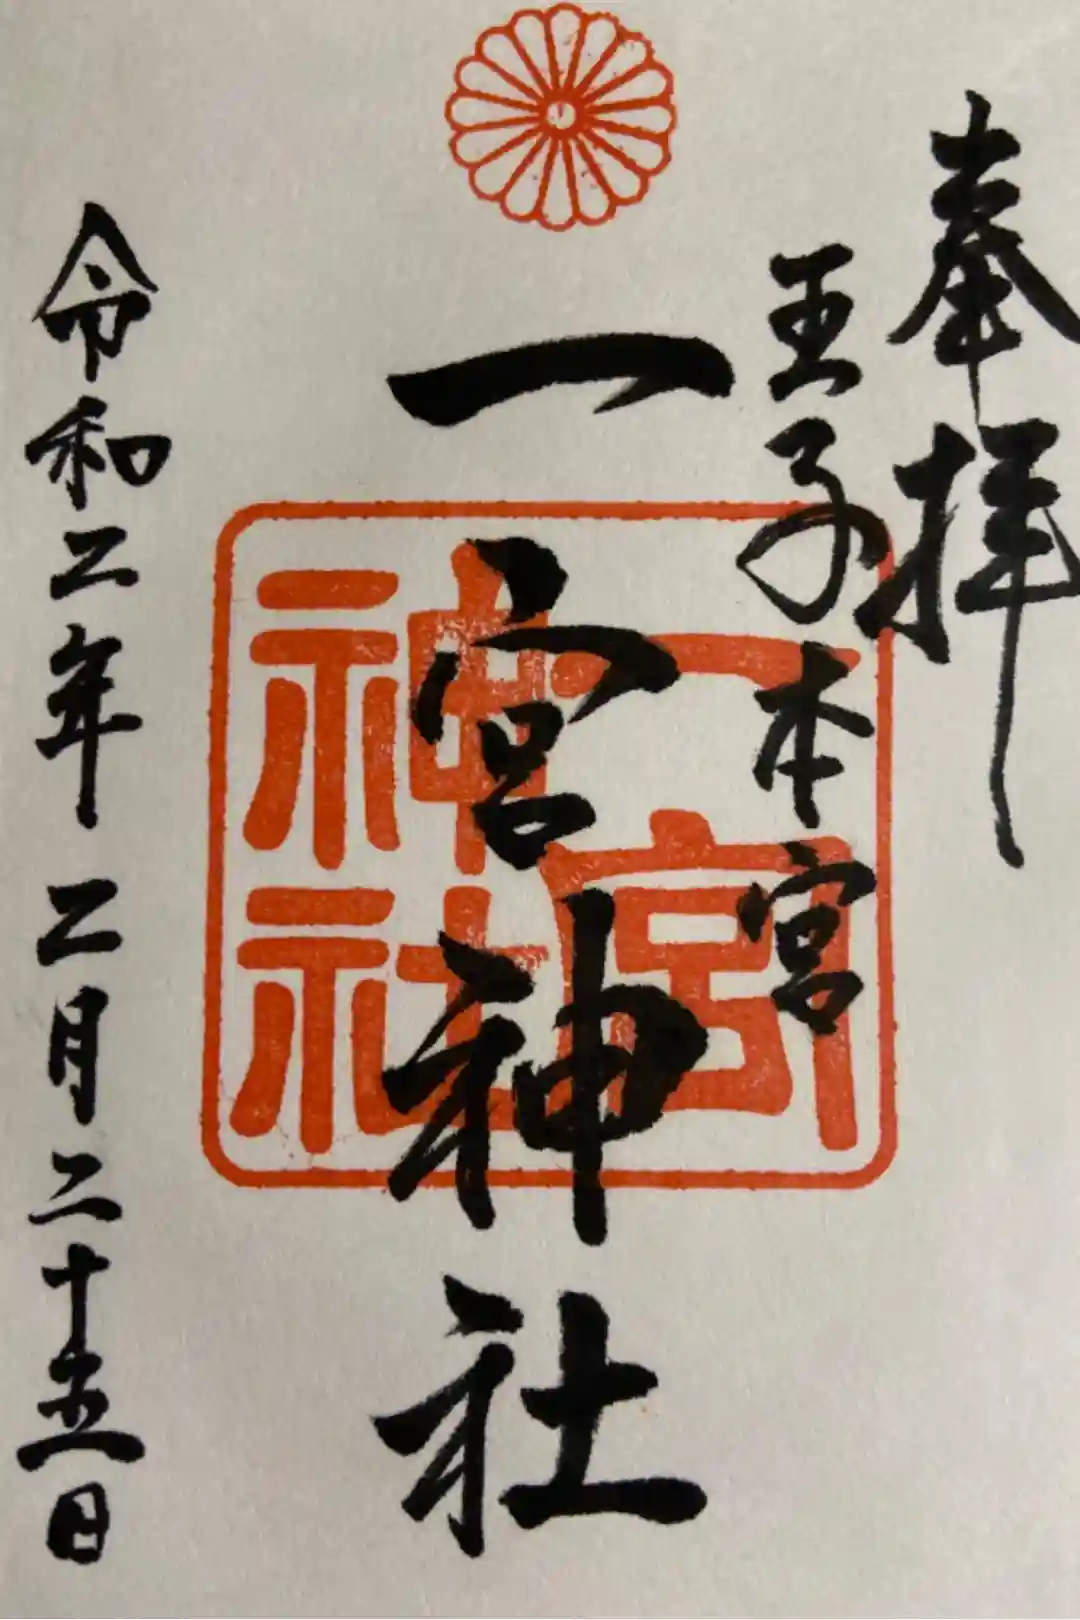 奉拝
王子本宮
一宮神社
一宮
神社
令和二年二月二十五日